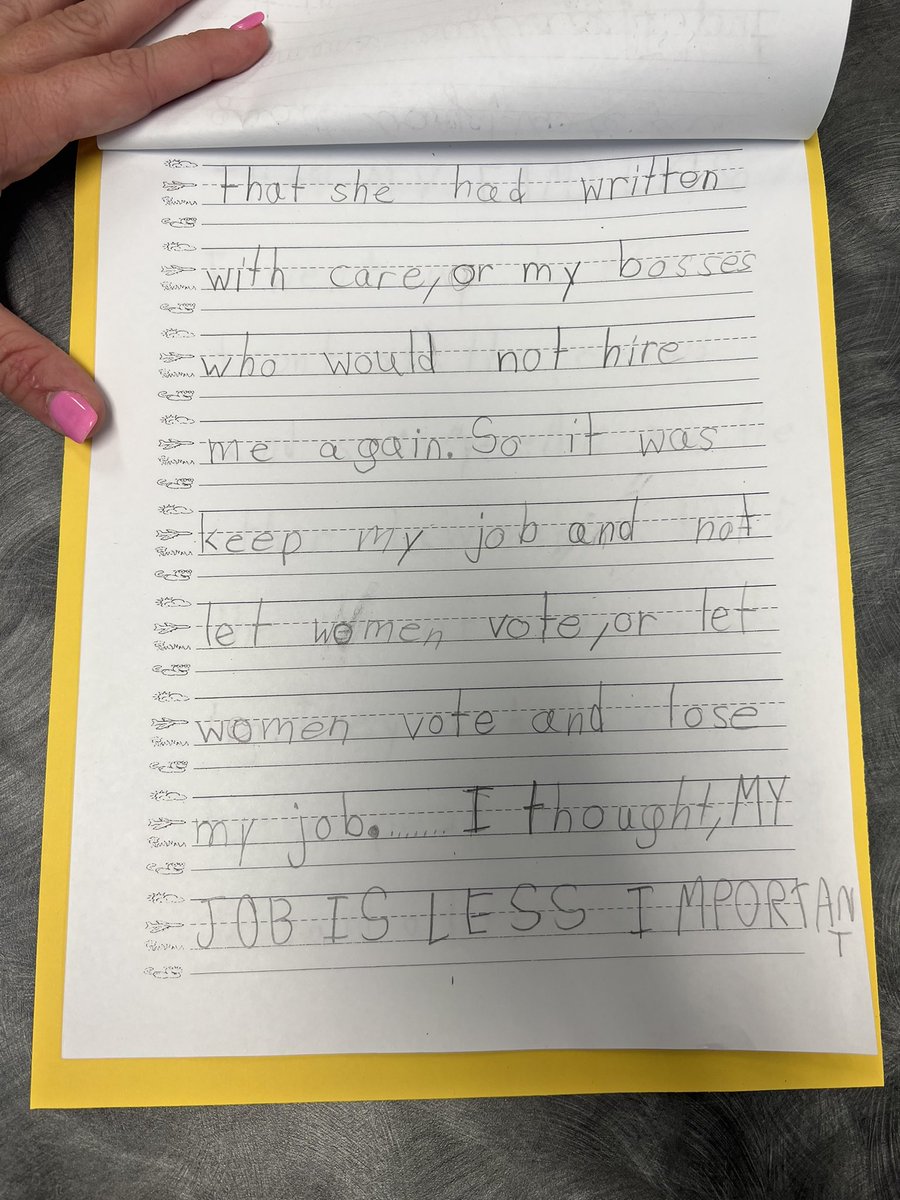 that she had written
with care, or my bosses
who would not hire
me again. So it was
keep my job and not
let women vote, or let
women vote and lose
my job........ I thought, MY
JOB IS LESS IMPORTANT